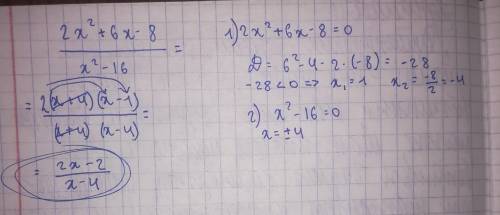 2x² + 6x - 8 / x² - 16 =
= 2(x+4)(x-1) / (x+4)(x-4) =
= 2x - 2 / x - 4
1) 2x² + 6x - 8 = 0
D = 6² - 4 · 2 · (-8) = -28
-28 < 0 => x₁ = 1 x₂ = -8/2 = -4
2) x² - 16 = 0
x = ±4